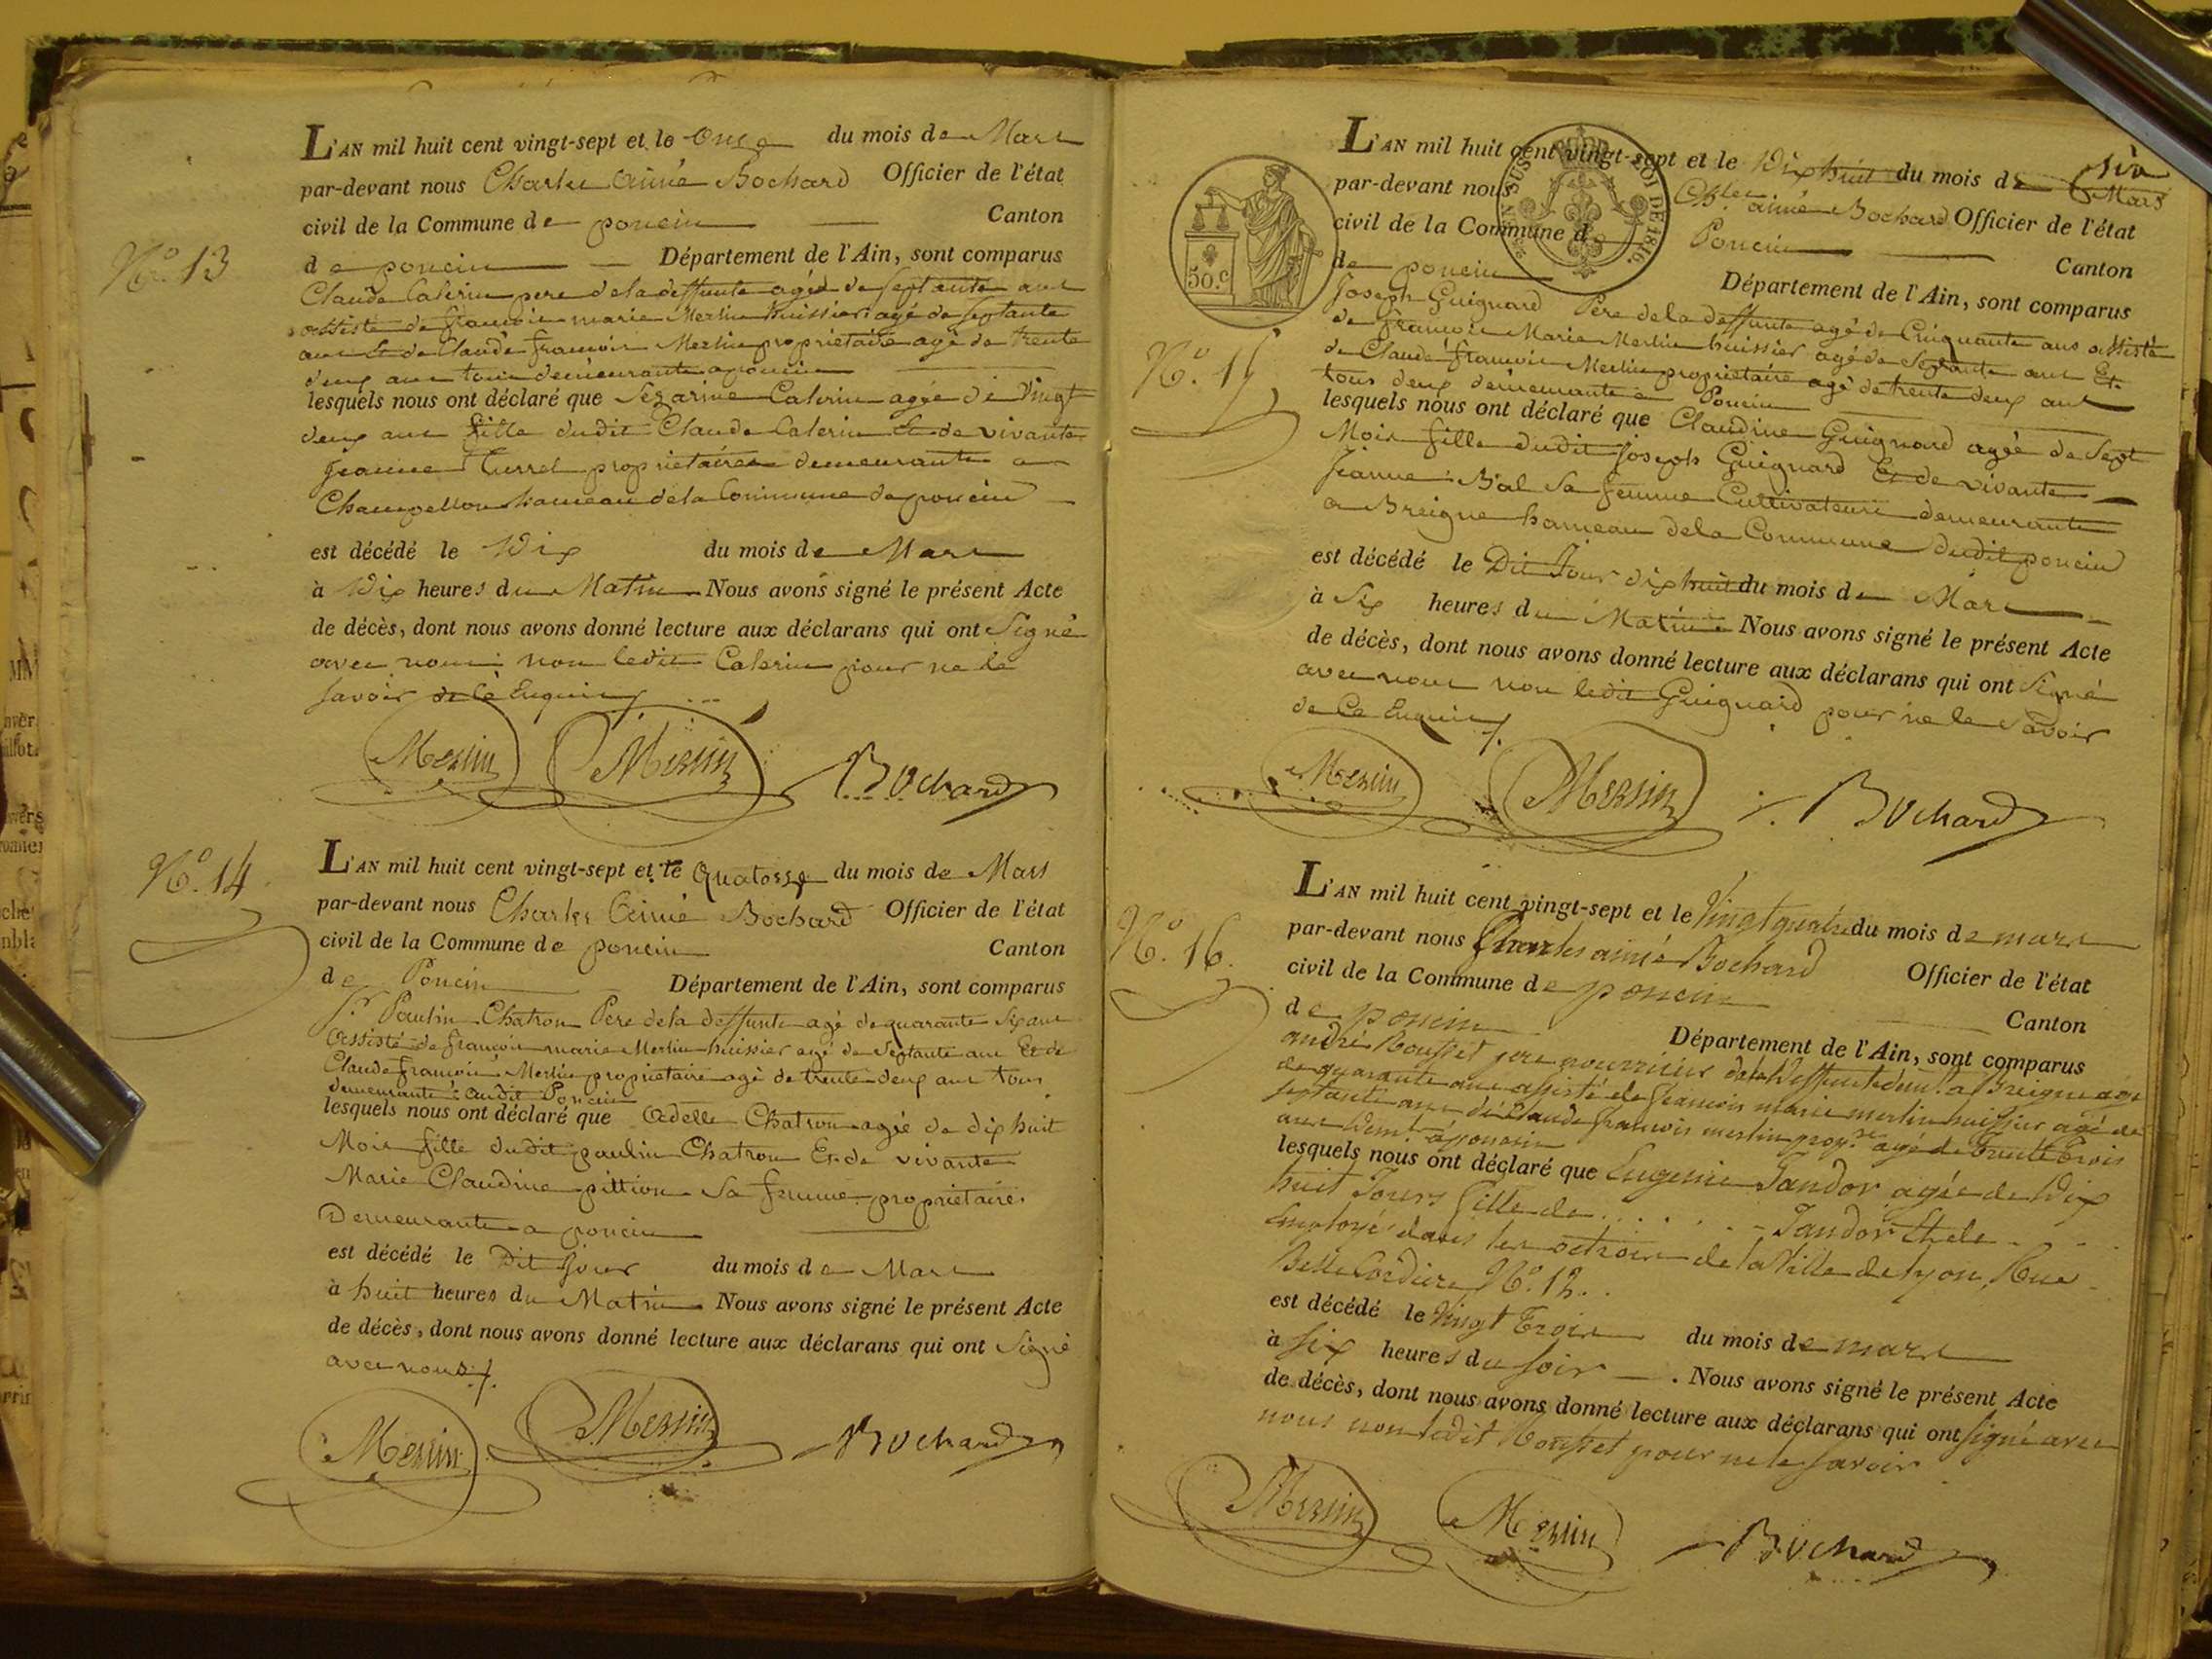 L'AN mil huit cent vingt-sept et le Onze du mois de Mars
par-devant nous Charles Aimé Bochard Officier de l'état
civil de la Commune de poncin Canton
N.° 13
de poncin Département de l'Ain, sont comparus
Claude Calerin pere de la deffunte agéd de septante ans
assisté de françois marie Merlin huissier agé de septante
ans Et de Claude françois Merlin propriétaire agé de trente
deux ans tous demeurants a poncin
lesquels nous ont déclaré que Sezarine Calerin agée de Vingt
deux ans fille dudit Claude Calerin Et de vivante
Jeanne Turrel propriétaires demeurants a
hameau de la Commune de poncin
est décédé le Dix du mois de Mars
à Dix heures du Matin Nous avons signé le présent Acte
de décès, dont nous avons donné lecture aux déclarans qui ont Signé
avec nous non ledit Calerin pour ne le
savoir de Ce Enquis
Merlin Merlin Bochard
N.° 14
L'AN mil huit cent vingt-sept et le Quatorze du mois de Mars
par-devant nous Charles Aimé Bochard Officier de l'état
civil de la Commune de poncin Canton
de Poncin Département de l'Ain, sont comparus
S.r Paulin Chatron Pere de la deffunte agé de quarante Six ans
Assisté de françois marie Merlin huissier agé de Septante ans Et de
Claude françois Merlin propriétaire agé de trente deux ans tous
demeurants audit Poncin
lesquels nous ont déclaré que Adelle Chatron agée de dix huit
Mois fille dudit paulin Chatron Et de vivante
Marie Claudine pittion Sa femme propriétaires
Demeurants a poncin
est décédé le Dit Jour du mois de Mars
à huit heures du Matin Nous avons signé le présent Acte
de décès, dont nous avons donné lecture aux déclarans qui ont Signé
avec nous
Merlin Merlin Bochard
50.c
ROI DE 1816
L'AN mil huit cent vingt-sept et le Dix huit du mois de Mars
par-devant nous Ch.les aimé Bochard Officier de l'état
civil de la Commune de Poncin Canton
de poncin Département de l'Ain, sont comparus
N.° 15
Joseph Guignard Pere de la deffunte agé de Cinquante ans assisté
de françois Marie Merlin huissier agé de Septante ans Et
de Claude françois Merlin propriétaire agé de trente deux ans
tous deux demeurants a Poncin
lesquels nous ont déclaré que Claudine Guignard agée de Sept
Mois fille dudit Joseph Guignard Et de vivante
Jeanne Bal Sa femme Cultivateurs demeurants
a Breigne hameau de la Commune dudit poncin
est décédé le Dit Jour dix huit du mois de Mars
à Six heures du Matin Nous avons signé le présent Acte
de décès, dont nous avons donné lecture aux déclarans qui ont Signé
avec nous non ledit Guignard pour ne le Savoir
de Ce Enquis
Merlin Merlin Bochard
N.° 16.
L'AN mil huit cent vingt-sept et le Vingt quatre du mois de mars
par-devant nous Charles aimé Bochard Officier de l'état
civil de la Commune de poncin Canton
de poncin Département de l'Ain, sont comparus
andré Rousset pere nourricier de la deffunte dem.t a Breigne agé
de quarante ans assisté de françois marie merlin huissier agé de
septante ans de Claude françois merlin prop.re agé de trente trois
ans dem.t à poncin
lesquels nous ont déclaré que Eugenie Jandor agée de Dix
huit Jours fille de . . . . . . Jandor Et de . . .
Employés dans les octrois de la Ville de lyon, Rue
Belle Cordiere N.° 12 . .
est décédé le Vingt Trois du mois de mars
à Six heures du Soir . Nous avons signé le présent Acte
de décès, dont nous avons donné lecture aux déclarans qui ont signé avec
nous non ledit Rousset pour ne le Savoir
Merlin Merlin Bochard